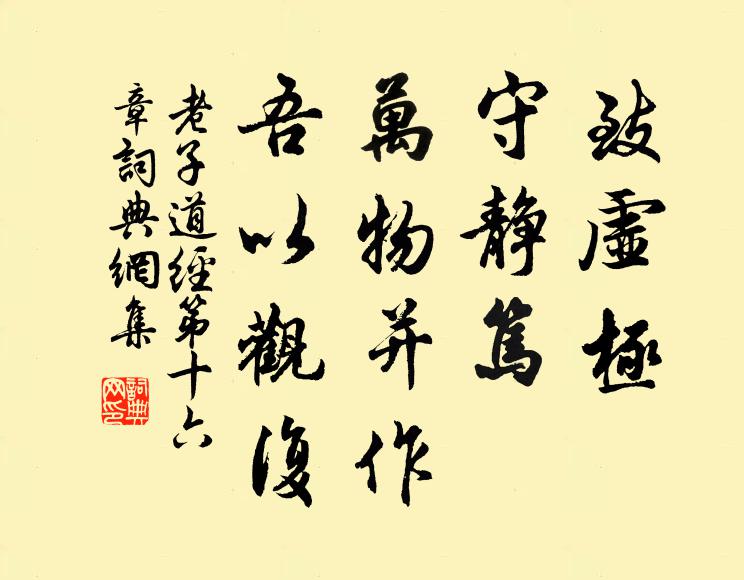 致虛極
守静篤
萬物并作
吾以觀復
老子道經第十六
章詞典網集
詞典网印